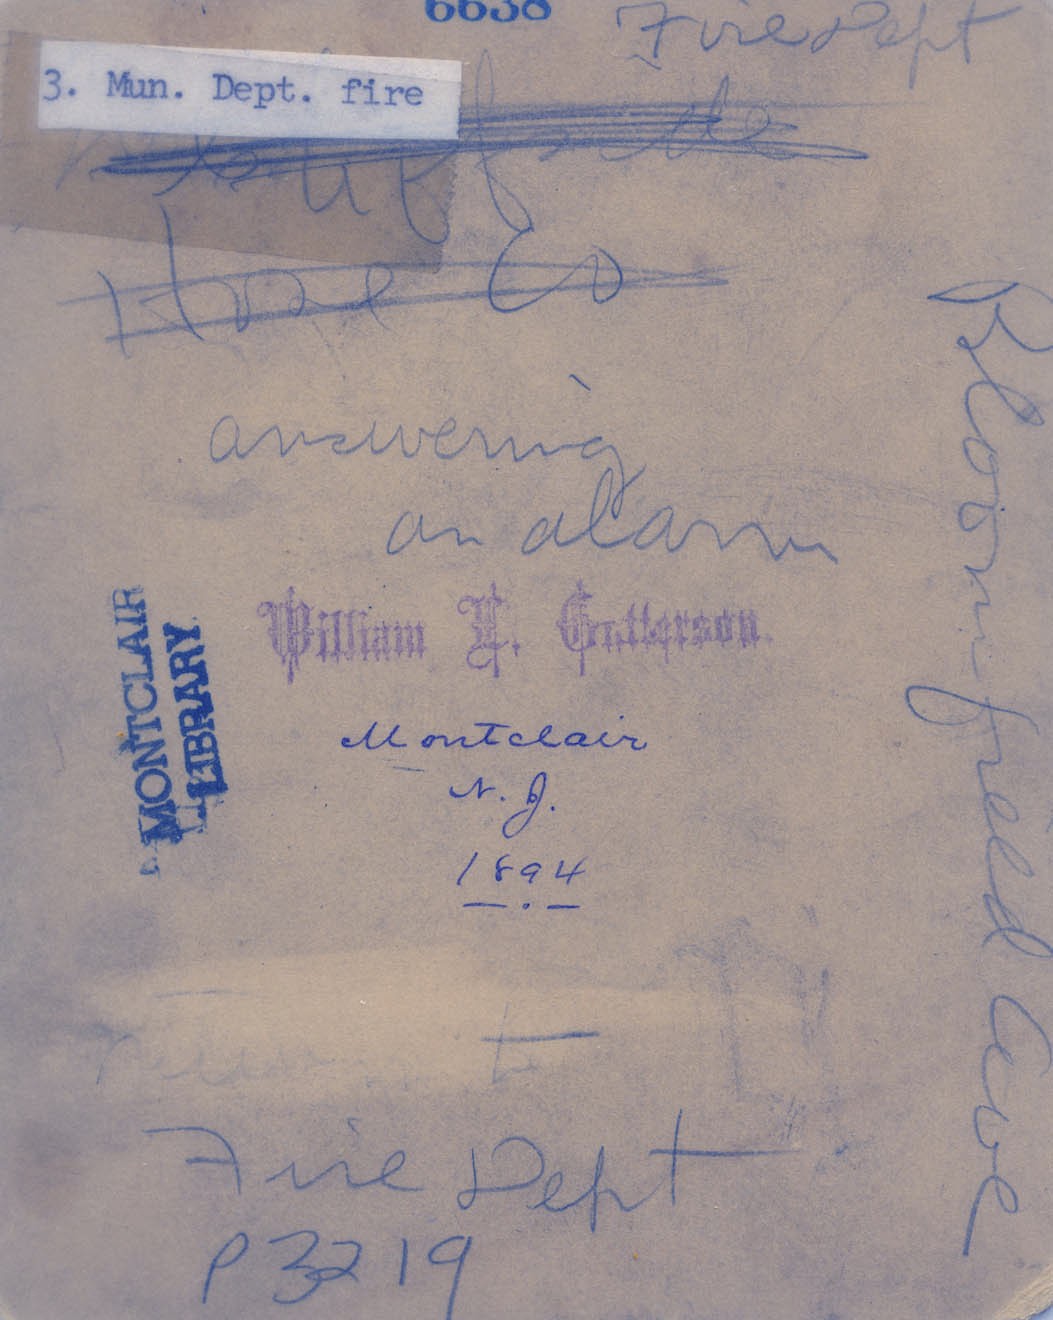 6638
Fire Dept
3. Mun. Dept. fire
Hose Co
answering
an alarm
William L.
MONTCLAIR
LIBRARY
Montclair
N. J.
1894
Fire Dept
P3219
Bloomfield Ave